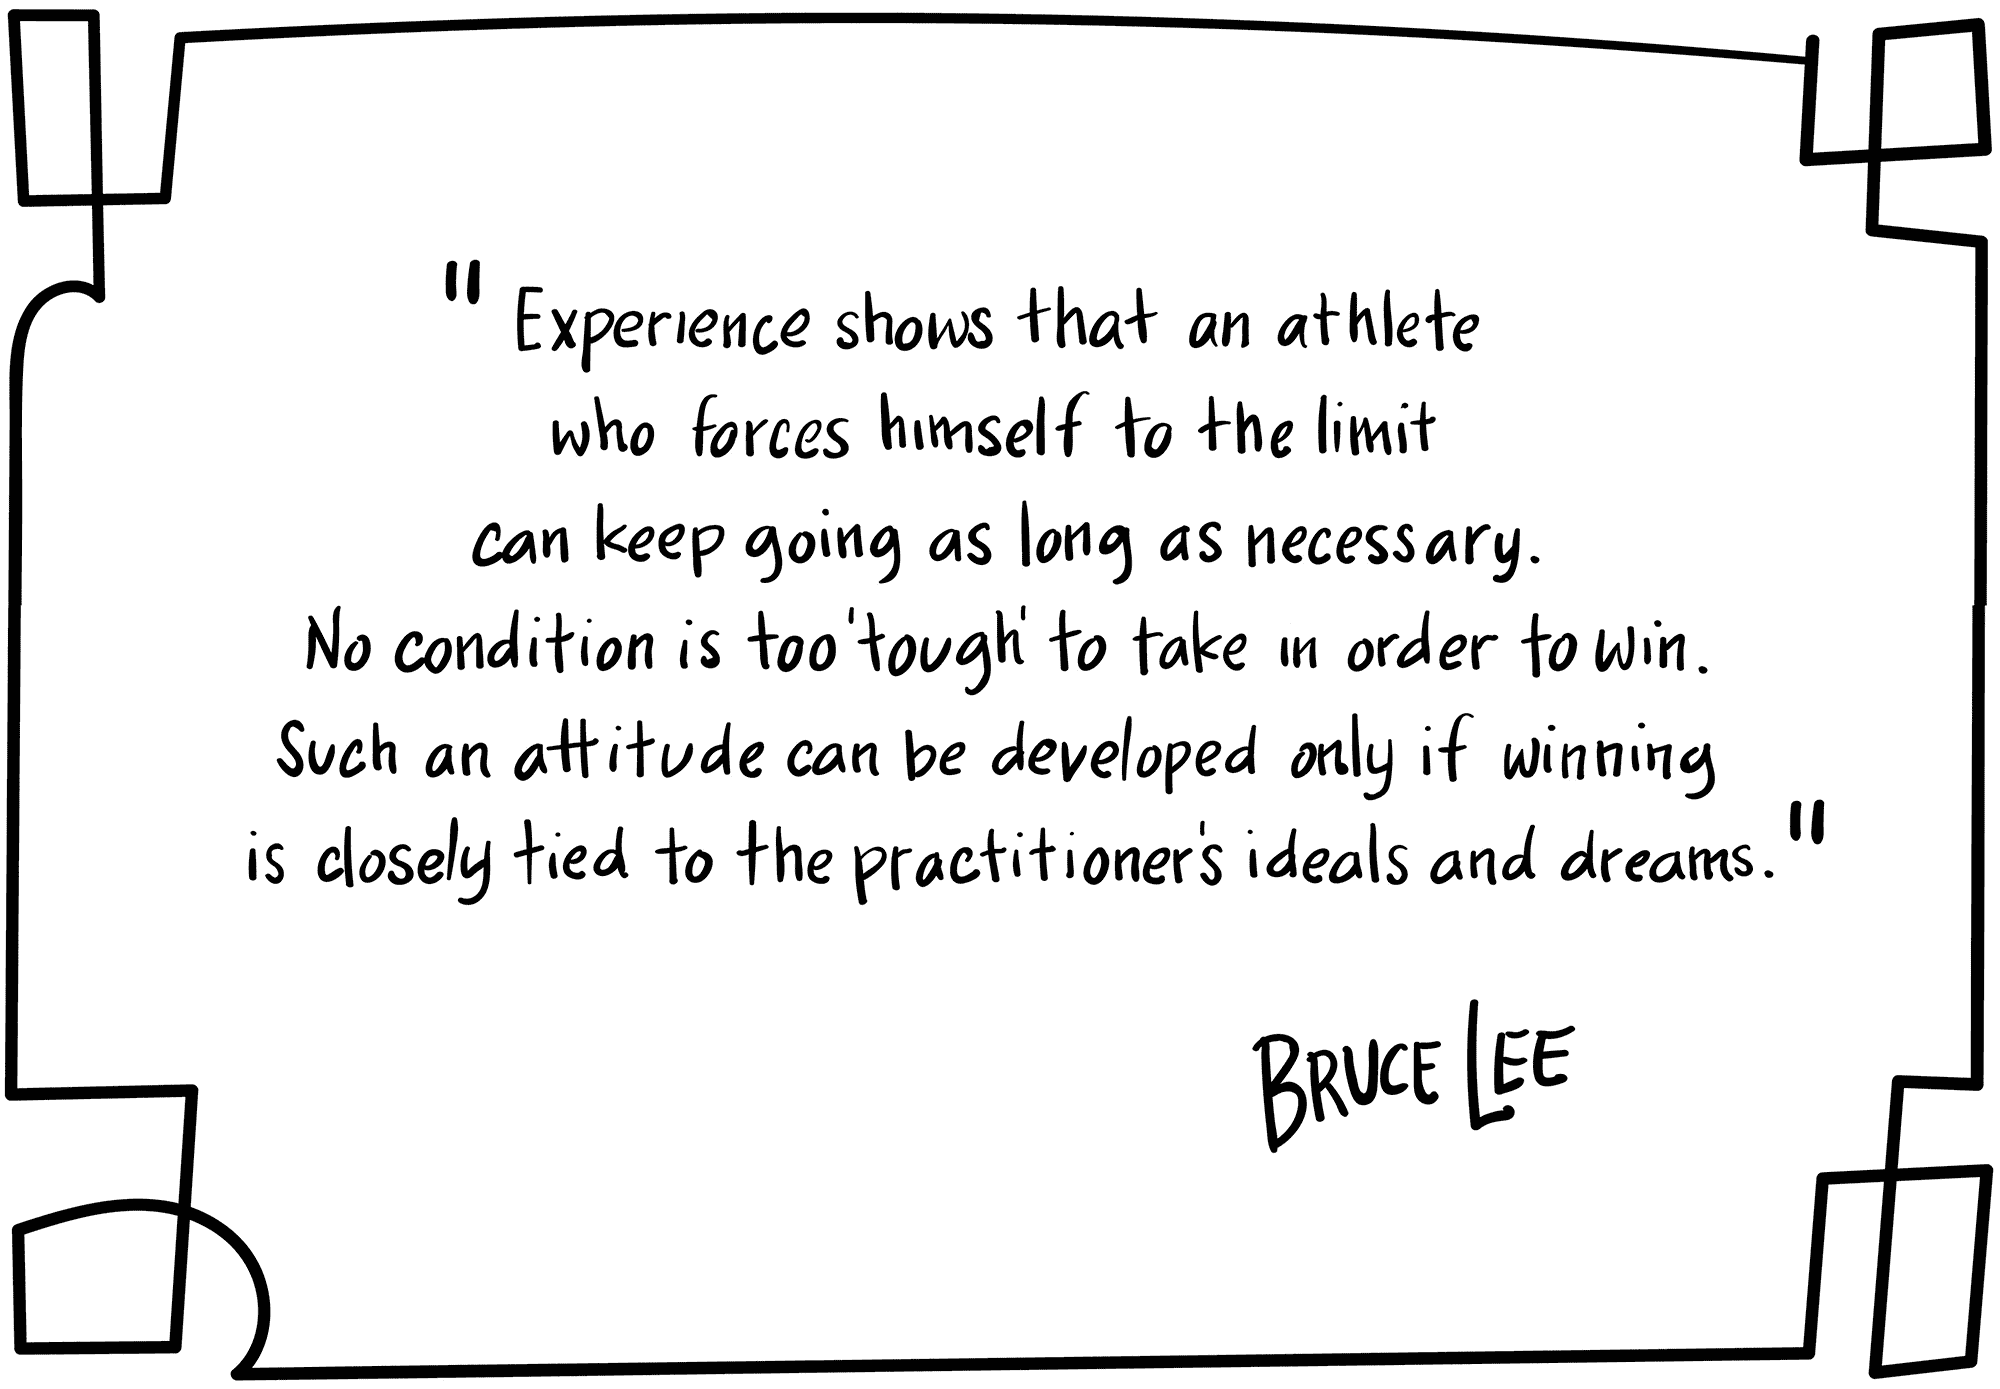 " Experience shows that an athlete
who forces himself to the limit
can keep going as long as necessary.
No condition is too 'tough' to take in order to win.
Such an attitude can be developed only if winning
is closely tied to the practitioner's ideals and dreams."
BRUCE LEE